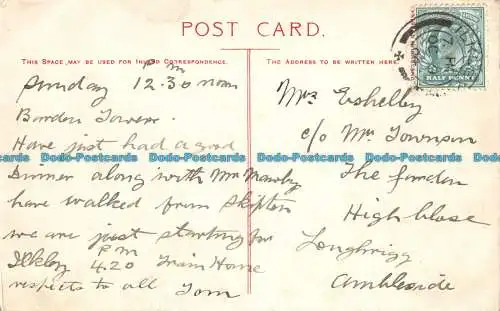 POST CARD.
THIS SPACE MAY BE USED FOR INLAND CORRESPONDENCE.
THE ADDRESS TO BE WRITTEN HERE.
HALF PENNY
P m
Sunday 12.30 noon
Barden Tower.
Have just had a good
Dinner along with Mr Mawby
have walked from Skipton
we are just starting for
P m
Ilkley 4.20 Train Home
respects to all Tom
Mrs Eshelby
c/o Mr Townson
The Garden
High Close
Loughrigg
Ambleside
Dodo-Postcards Dodo-Postcards Dodo-Postcards Dodo-Postcards Dodo-Postcards